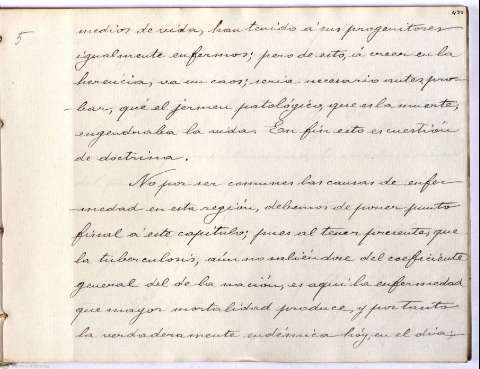 5
medios de vida, han tenido á sus progenitores
igualmente enfermos; pero de esto, á creer en la
herencia, va un caos; seria necesario antes pro-
-bar, qué el jermen patológico, que es la muerte,
engendraba la vida. En fin esto es cuestión
de doctrina.
No por ser comunes las causas de enfer-
-medad en esta región, debemos de poner punto
final a este capítulo; pues al tener presente, que
la tuberculosis, aún no saliéndose del coeficiente
general del de la nación, es aqui la enfermedad
que mayor mortalidad produce, y por tanto
la verdaderamente endémica hoy, en el dia;